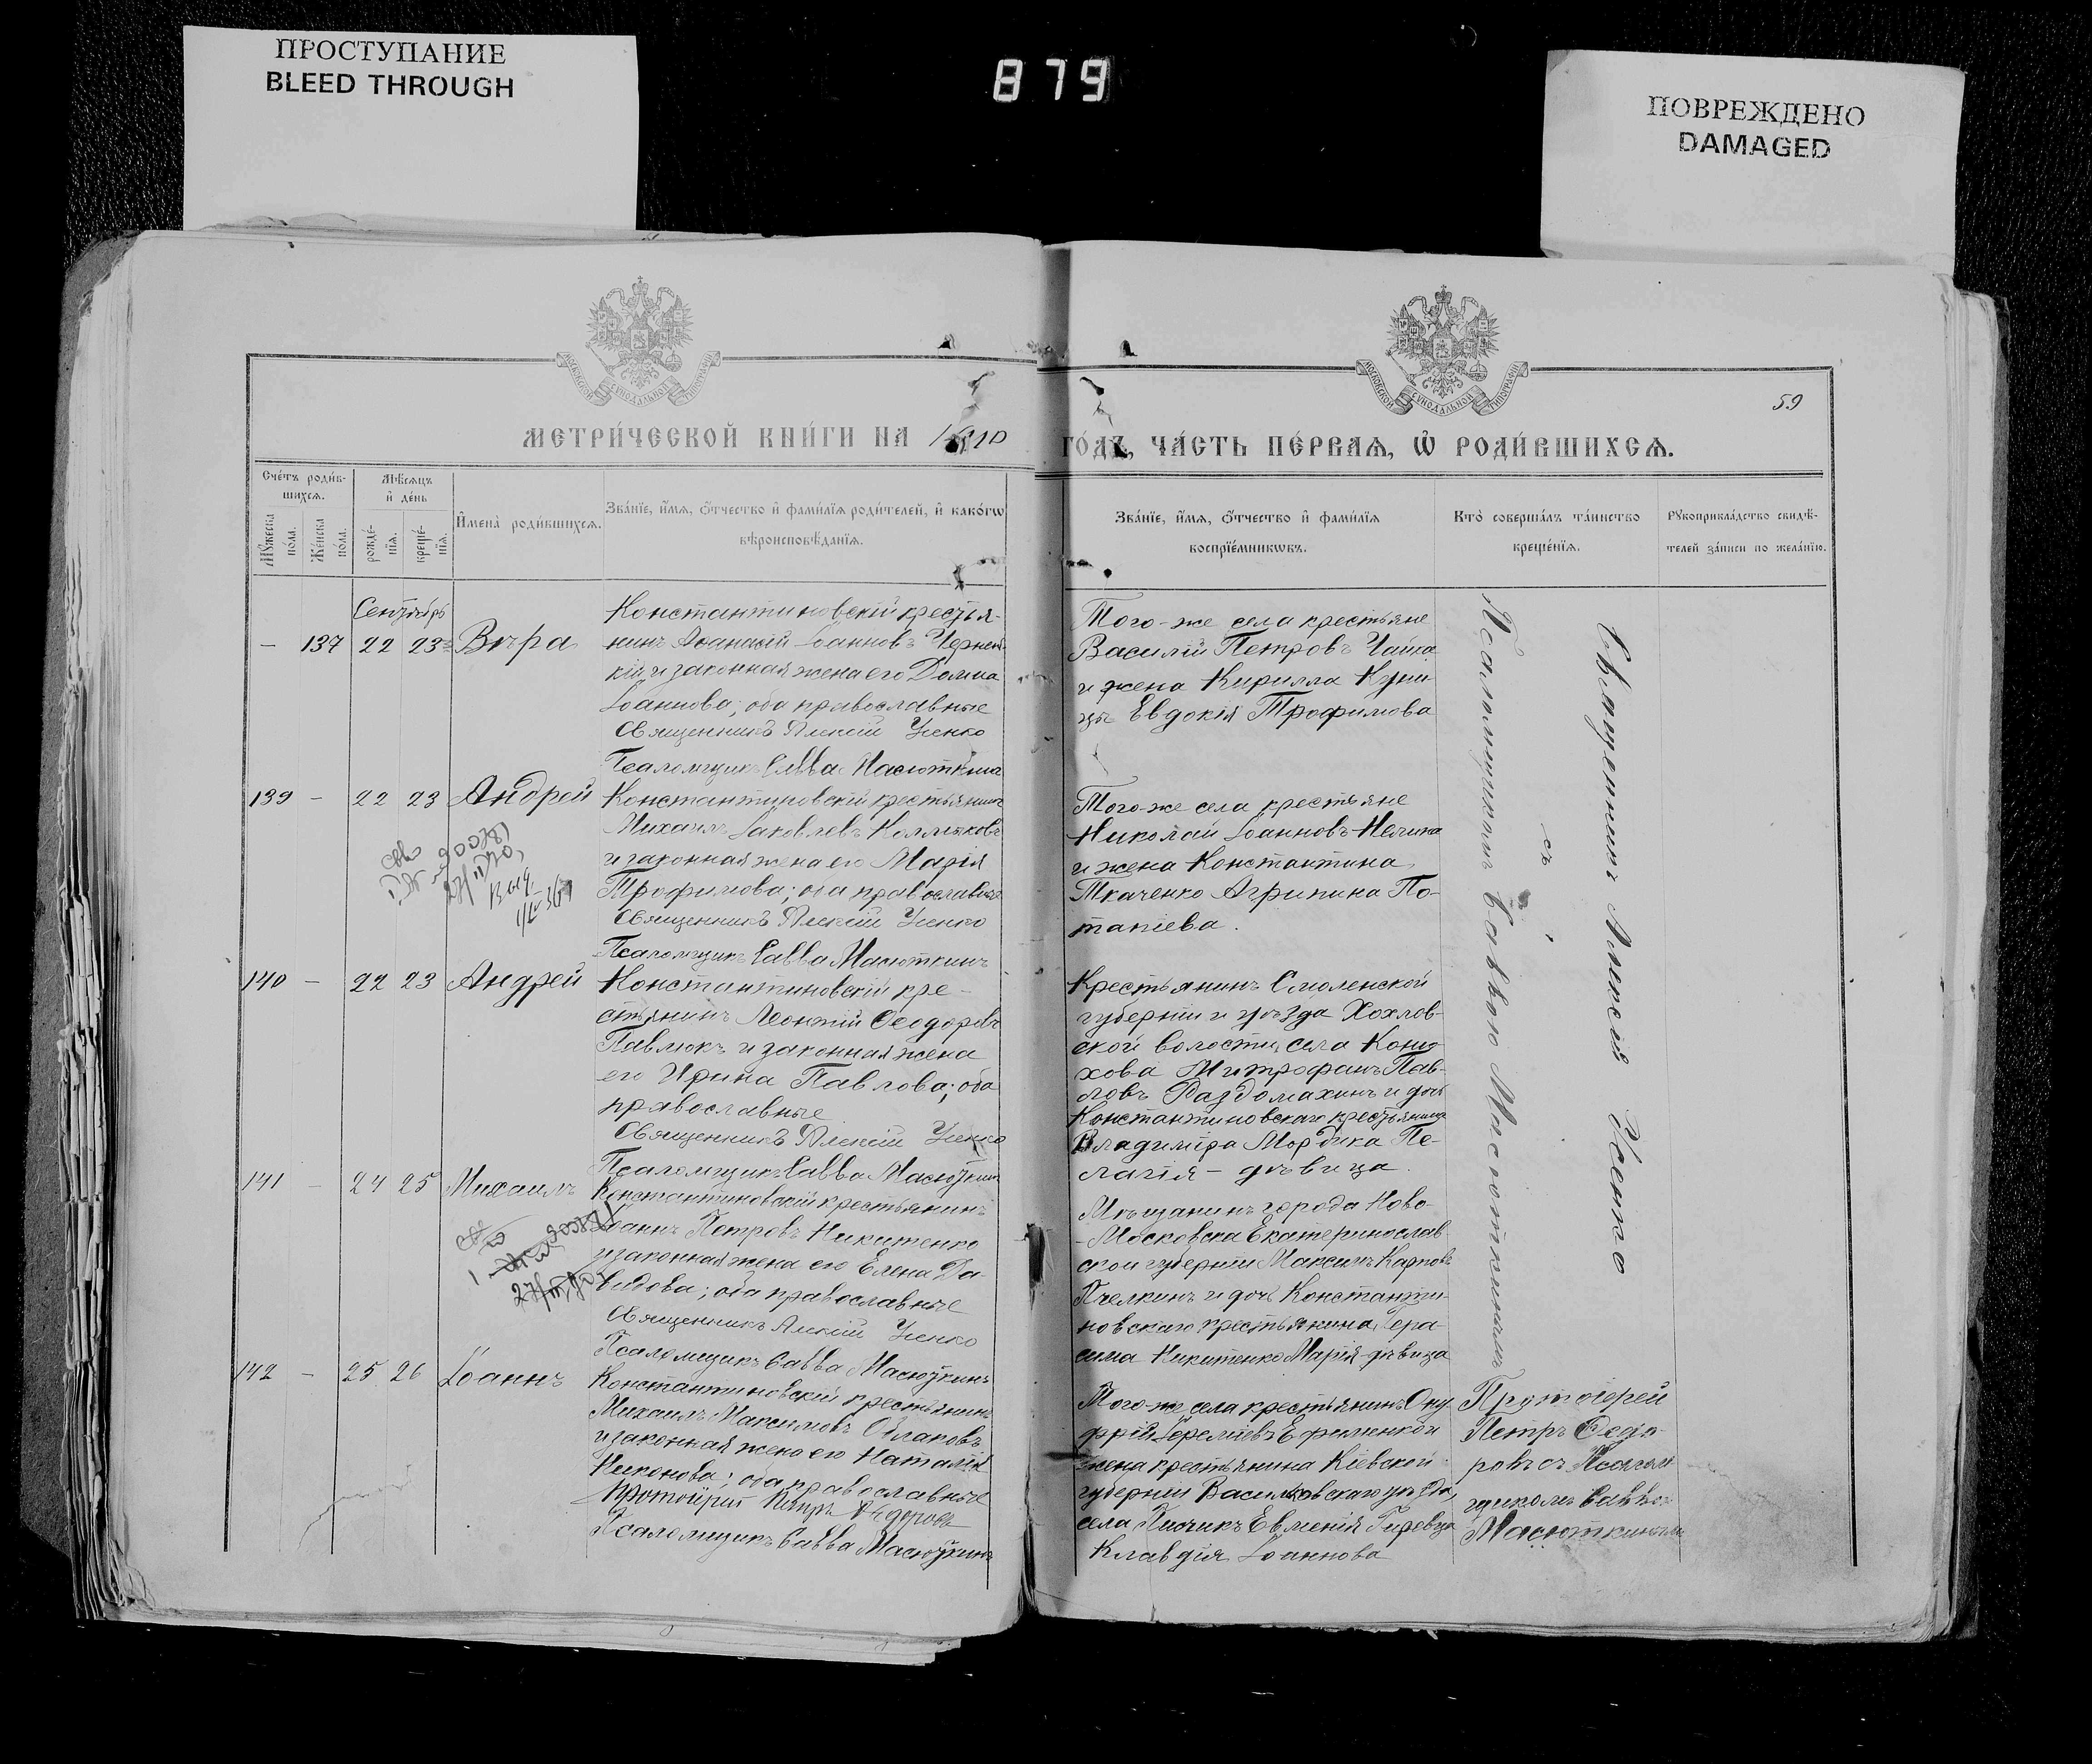 ПРОСТУПАНИЕ
BLEED THROUGH
879
ПОВРЕЖДЕНО
DAMAGED
МОСКОВСКОЙ СУНОДАЛЬНОЙ ТИПОГРАФІИ
МОСКОВСКОЙ СУНОДАЛЬНОЙ ТИПОГРАФІИ
59
МЕТРИ́ЧЕСКОЙ КНИ́ГИ НА 1910
ГО́ДЪ, ЧА́СТЬ ПЕ́РВАѦ, Ѡ҆ РОДИ́ВШИХСѦ.
Сче́тъ роди́в-
шихсѧ.
Мꙋ́жеска по́ла.
Же́нска по́ла.
Мѣ́сѧцъ
и҆ де́нь
рожде́-
нїѧ.
креще́-
нїѧ.
И҆мена̀ роди́вшихсѧ.
Зва́нїе, и҆́мѧ, ѻ҆́тчество и҆ фами́лїѧ роди́телей, и҆ како́гѡ
вѣроисповѣ́данїѧ.
Зва́нїе, и҆́мѧ, ѻ҆́тчество и҆ фами́лїѧ
воспрїе́мникѡвъ.
Кто̀ соверша́лъ та́инство
креще́нїѧ.
Рꙋкоприкла́дство свидѣ́-
телей за́писи по жела́нїю.
Сентябрь
– 137 22 23 Вѣра
Константиновскій крестья-
нинъ Аѳанасій Іоанновъ Чернен-
кій и законная жена его Домна
Іоаннова; оба православные
Священникъ Алексій Усенко
Псаломщикъ Савва Масюткинъ
Того-же села крестьяне
Василій Петровъ Чайка
и жена Кирилла Куни-
цы Евдокія Трофимова
139 – 22 23 Андрей
Константиновскій крестьянинъ
Михаилъ Іаковлевъ Колляковъ
и законная жена его Марія
Трофимова; оба православные
Священникъ Алексій Усенко
Псаломщикъ Савва Масюткинъ
Того-же села крестьяне
Николай Іоанновъ
и жена Константина
Ткаченко Агрипина По-
тапіева.
140 – 22 23 Андрей
Константиновскій кре-
стьянинъ Леонтій Ѳеодоровъ
Павлюкъ и законная жена
его Ирина Павлова; оба
православные
Священникъ Алексій Усенко
Псаломщикъ Савва Масюткинъ
Крестьянинъ Смоленской
губерніи и уѣзда Хохлов-
ской волости, села Коню-
хова Митрофанъ Пав-
ловъ Раздомахинъ и дочь
Константиновскаго крестьянина
Владиміра Мордика Пе-
лагія – дѣвица.
141 – 24 25 Михаилъ
Константиновскій крестьянинъ
Іоаннъ Петровъ Никитенко
и законная жена его Елена Да-
видова; оба православные
Священникъ Алексій Усенко
Псаломщикъ Савва Масюткинъ
Мѣщанинъ города Ново-
-Московска Екатеринослав-
ской губерніи Максимъ Карповъ
Пчелкинъ и дочь Константи-
новскаго крестьянина Гера-
сима Никитенко Марія-дѣвица
142 – 25 26 Іоаннъ
Константиновскій крестьянинъ
Михаилъ Максимовъ
и законная жена его Наталія
Никонова; оба православные
Протоіерей Петръ Ѳедоровъ
Псаломщикъ Савва Масюткинъ
Того-же села крестьянинъ Ону-
фрій Іереміевъ Ефименко и
жена крестьянина Кіевской
губерніи Васильковскаго уѣзда,
села Пинчикъ Евменія
Клавдія Іоаннова
Священникъ Алексій Усенко
съ
Псаломщикомъ Саввою Масюткинымъ
Протоіерей
Петръ Ѳедо-
ровъ съ Псалом-
щикомъ Саввою
Масюткинымъ